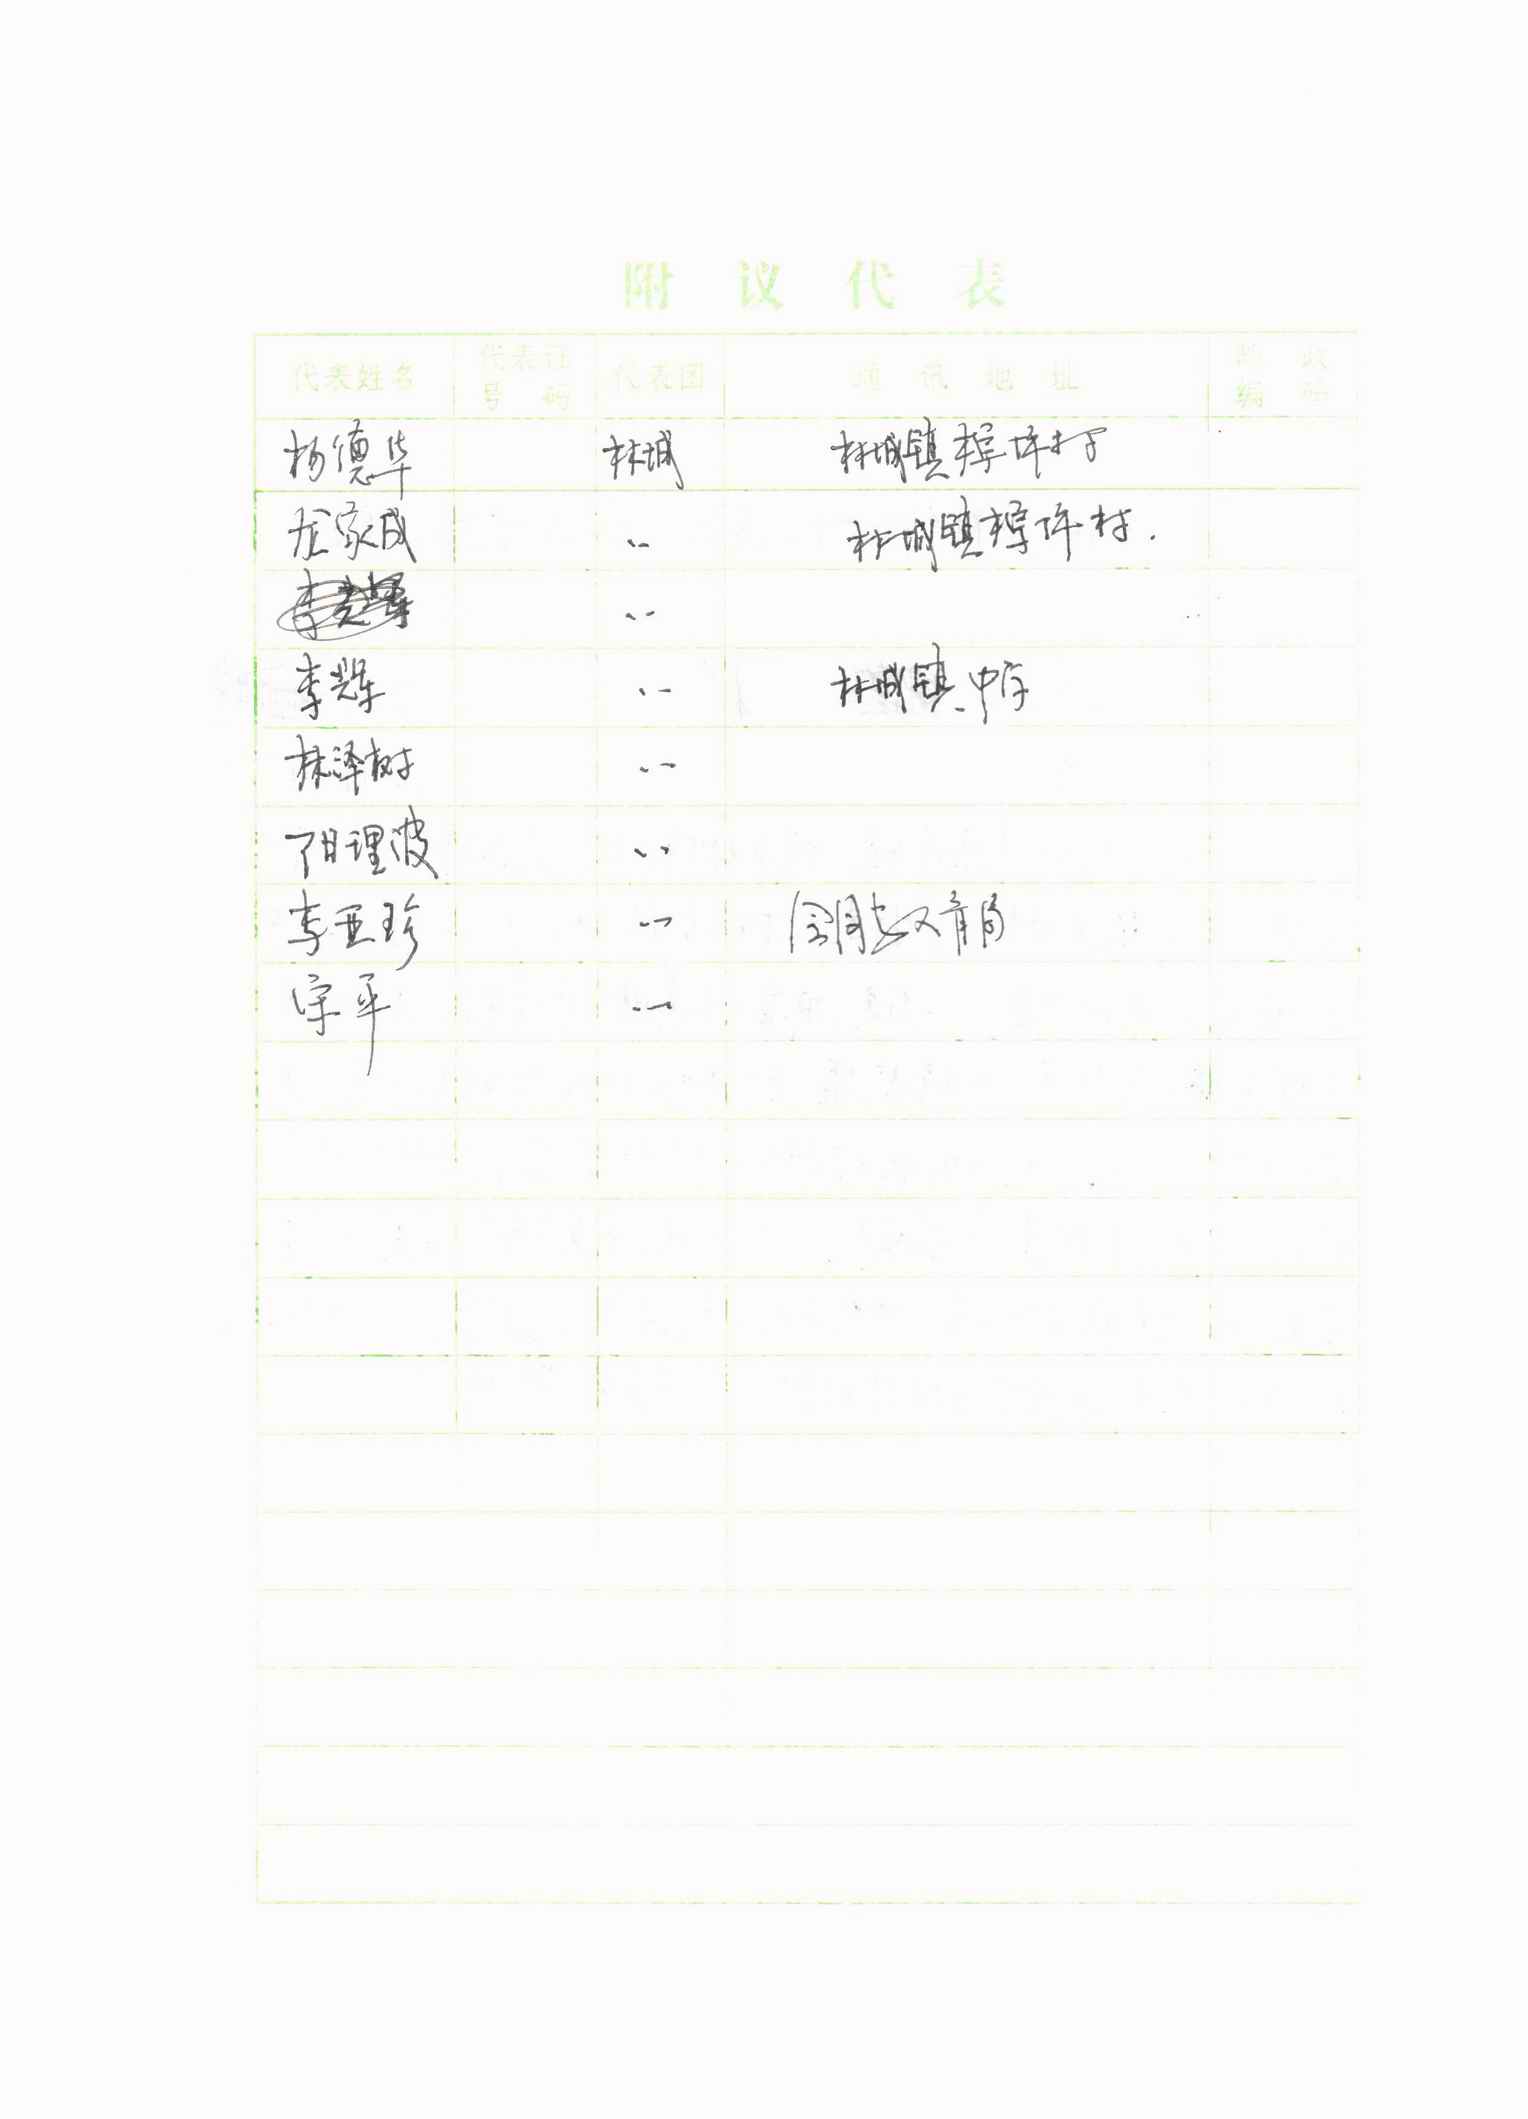 附议代表
代表姓名 代表证号码 代表团 通讯地址 邮政编码
杨德华 林城 林城镇樟坪村
龙家成 〃 林城镇樟坪村.
〃
李辉 〃 林城镇
林泽树 〃
阳理波 〃
李亚珍 〃 会同县教育局
宋平 〃